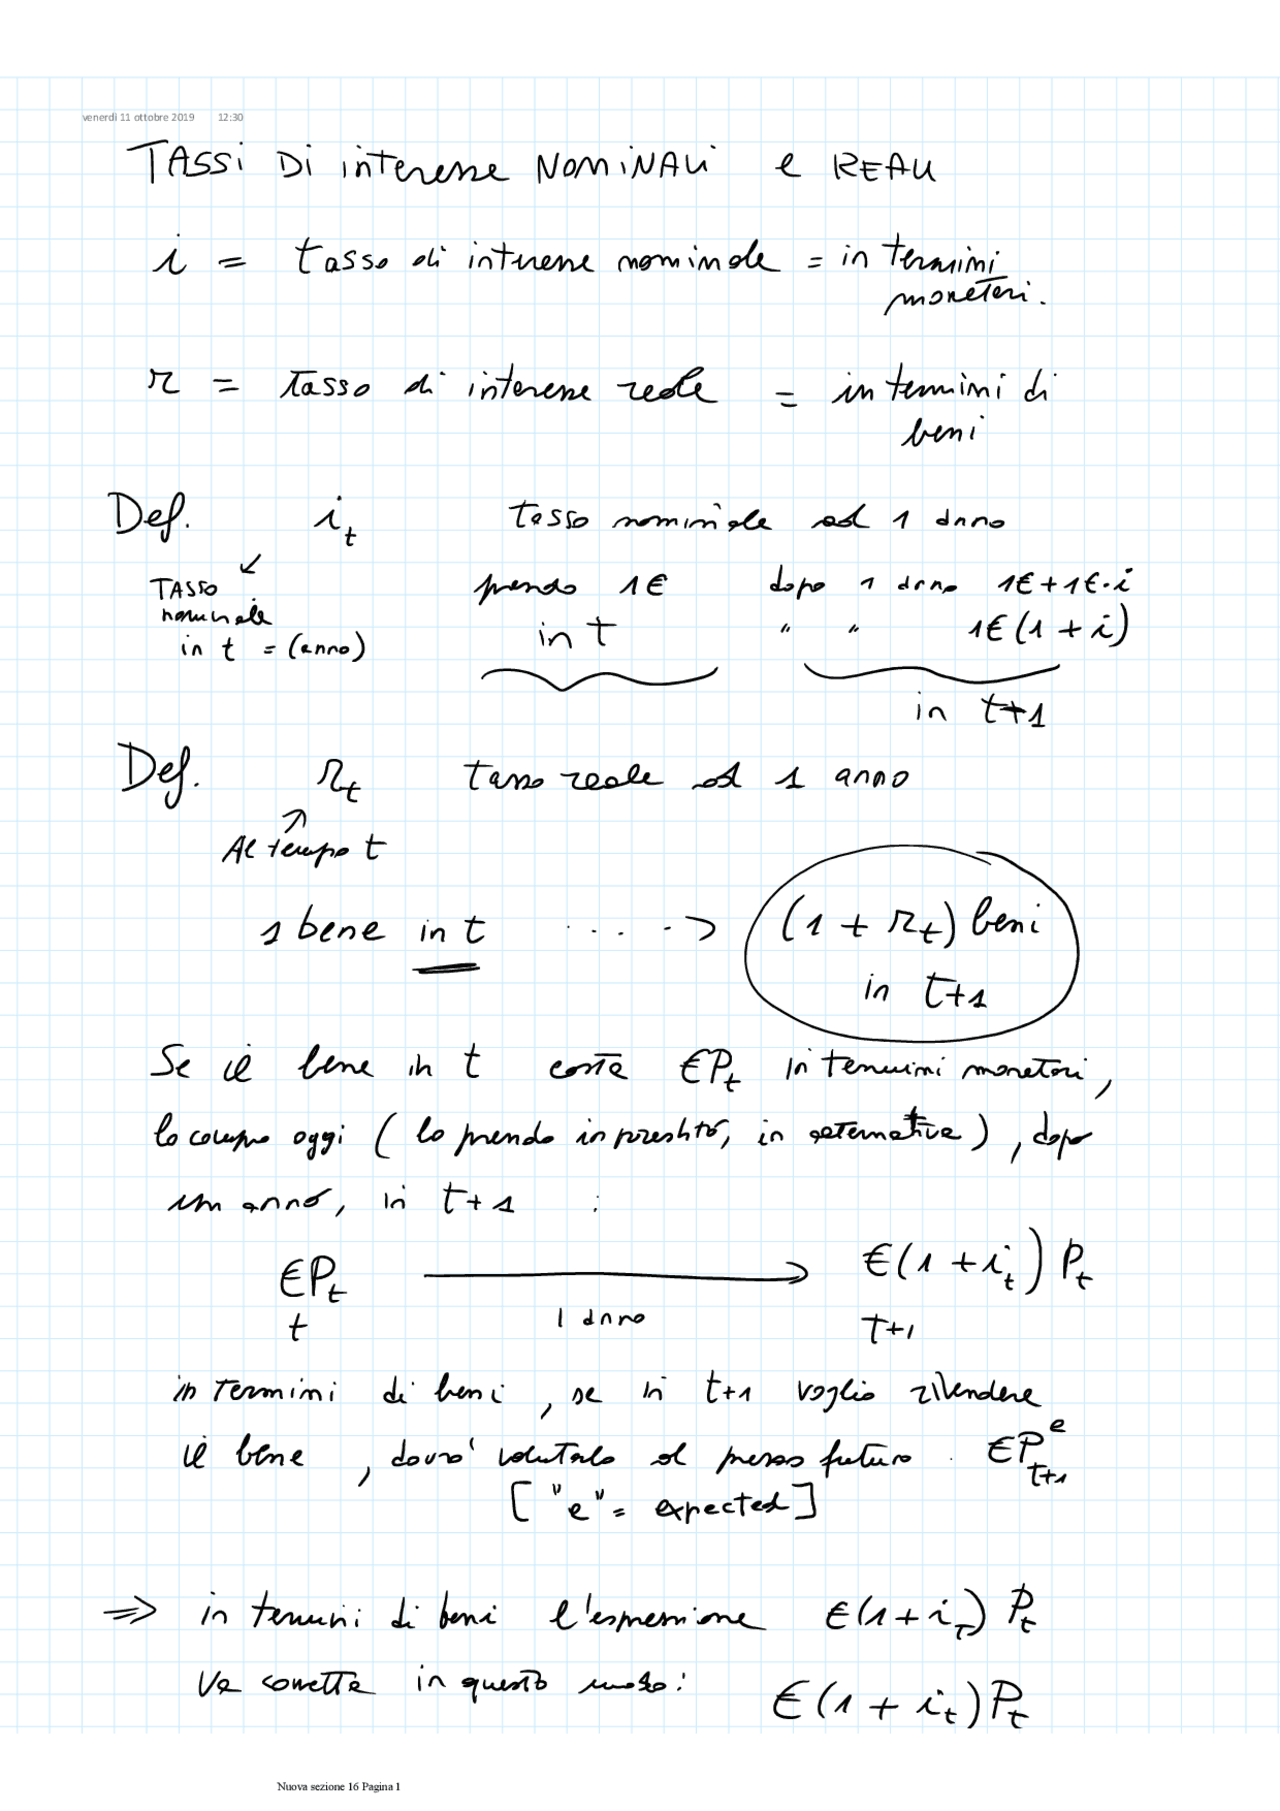 venerdì 11 ottobre 2019 12:30
TASSI DI interesse NOMINALI e REALI
i = tasso di interesse nominale = in termini
monetari.
r = tasso di interesse reale = in termini di
beni
Def. i_t tasso nominale ad 1 anno
TASSO prendo 1€ dopo 1 anno 1€+1€·i
nominale in t " " 1€(1+i)
in t = (anno)
in t+1
Def. r_t tasso reale ad 1 anno
Al tempo t
1 bene in t ....→ (1 + r_t) beni
in t+1
Se il bene in t costa €P_t in termini monetari,
lo compro oggi (lo prendo in prestito, in alternativa), dopo
un anno, in t+1 :
€P_t → €(1+i_t) P_t
t 1 anno t+1
in termini di beni, se in t+1 voglio rivendere
il bene, dovrò valutarlo al prezzo futuro €P^e_{t+1}
["e" = expected]
⇒ in termini di beni l'espressione €(1+i_t) P_t
va corretta in questo modo: €(1+i_t)P_t
Nuova sezione 16 Pagina 1